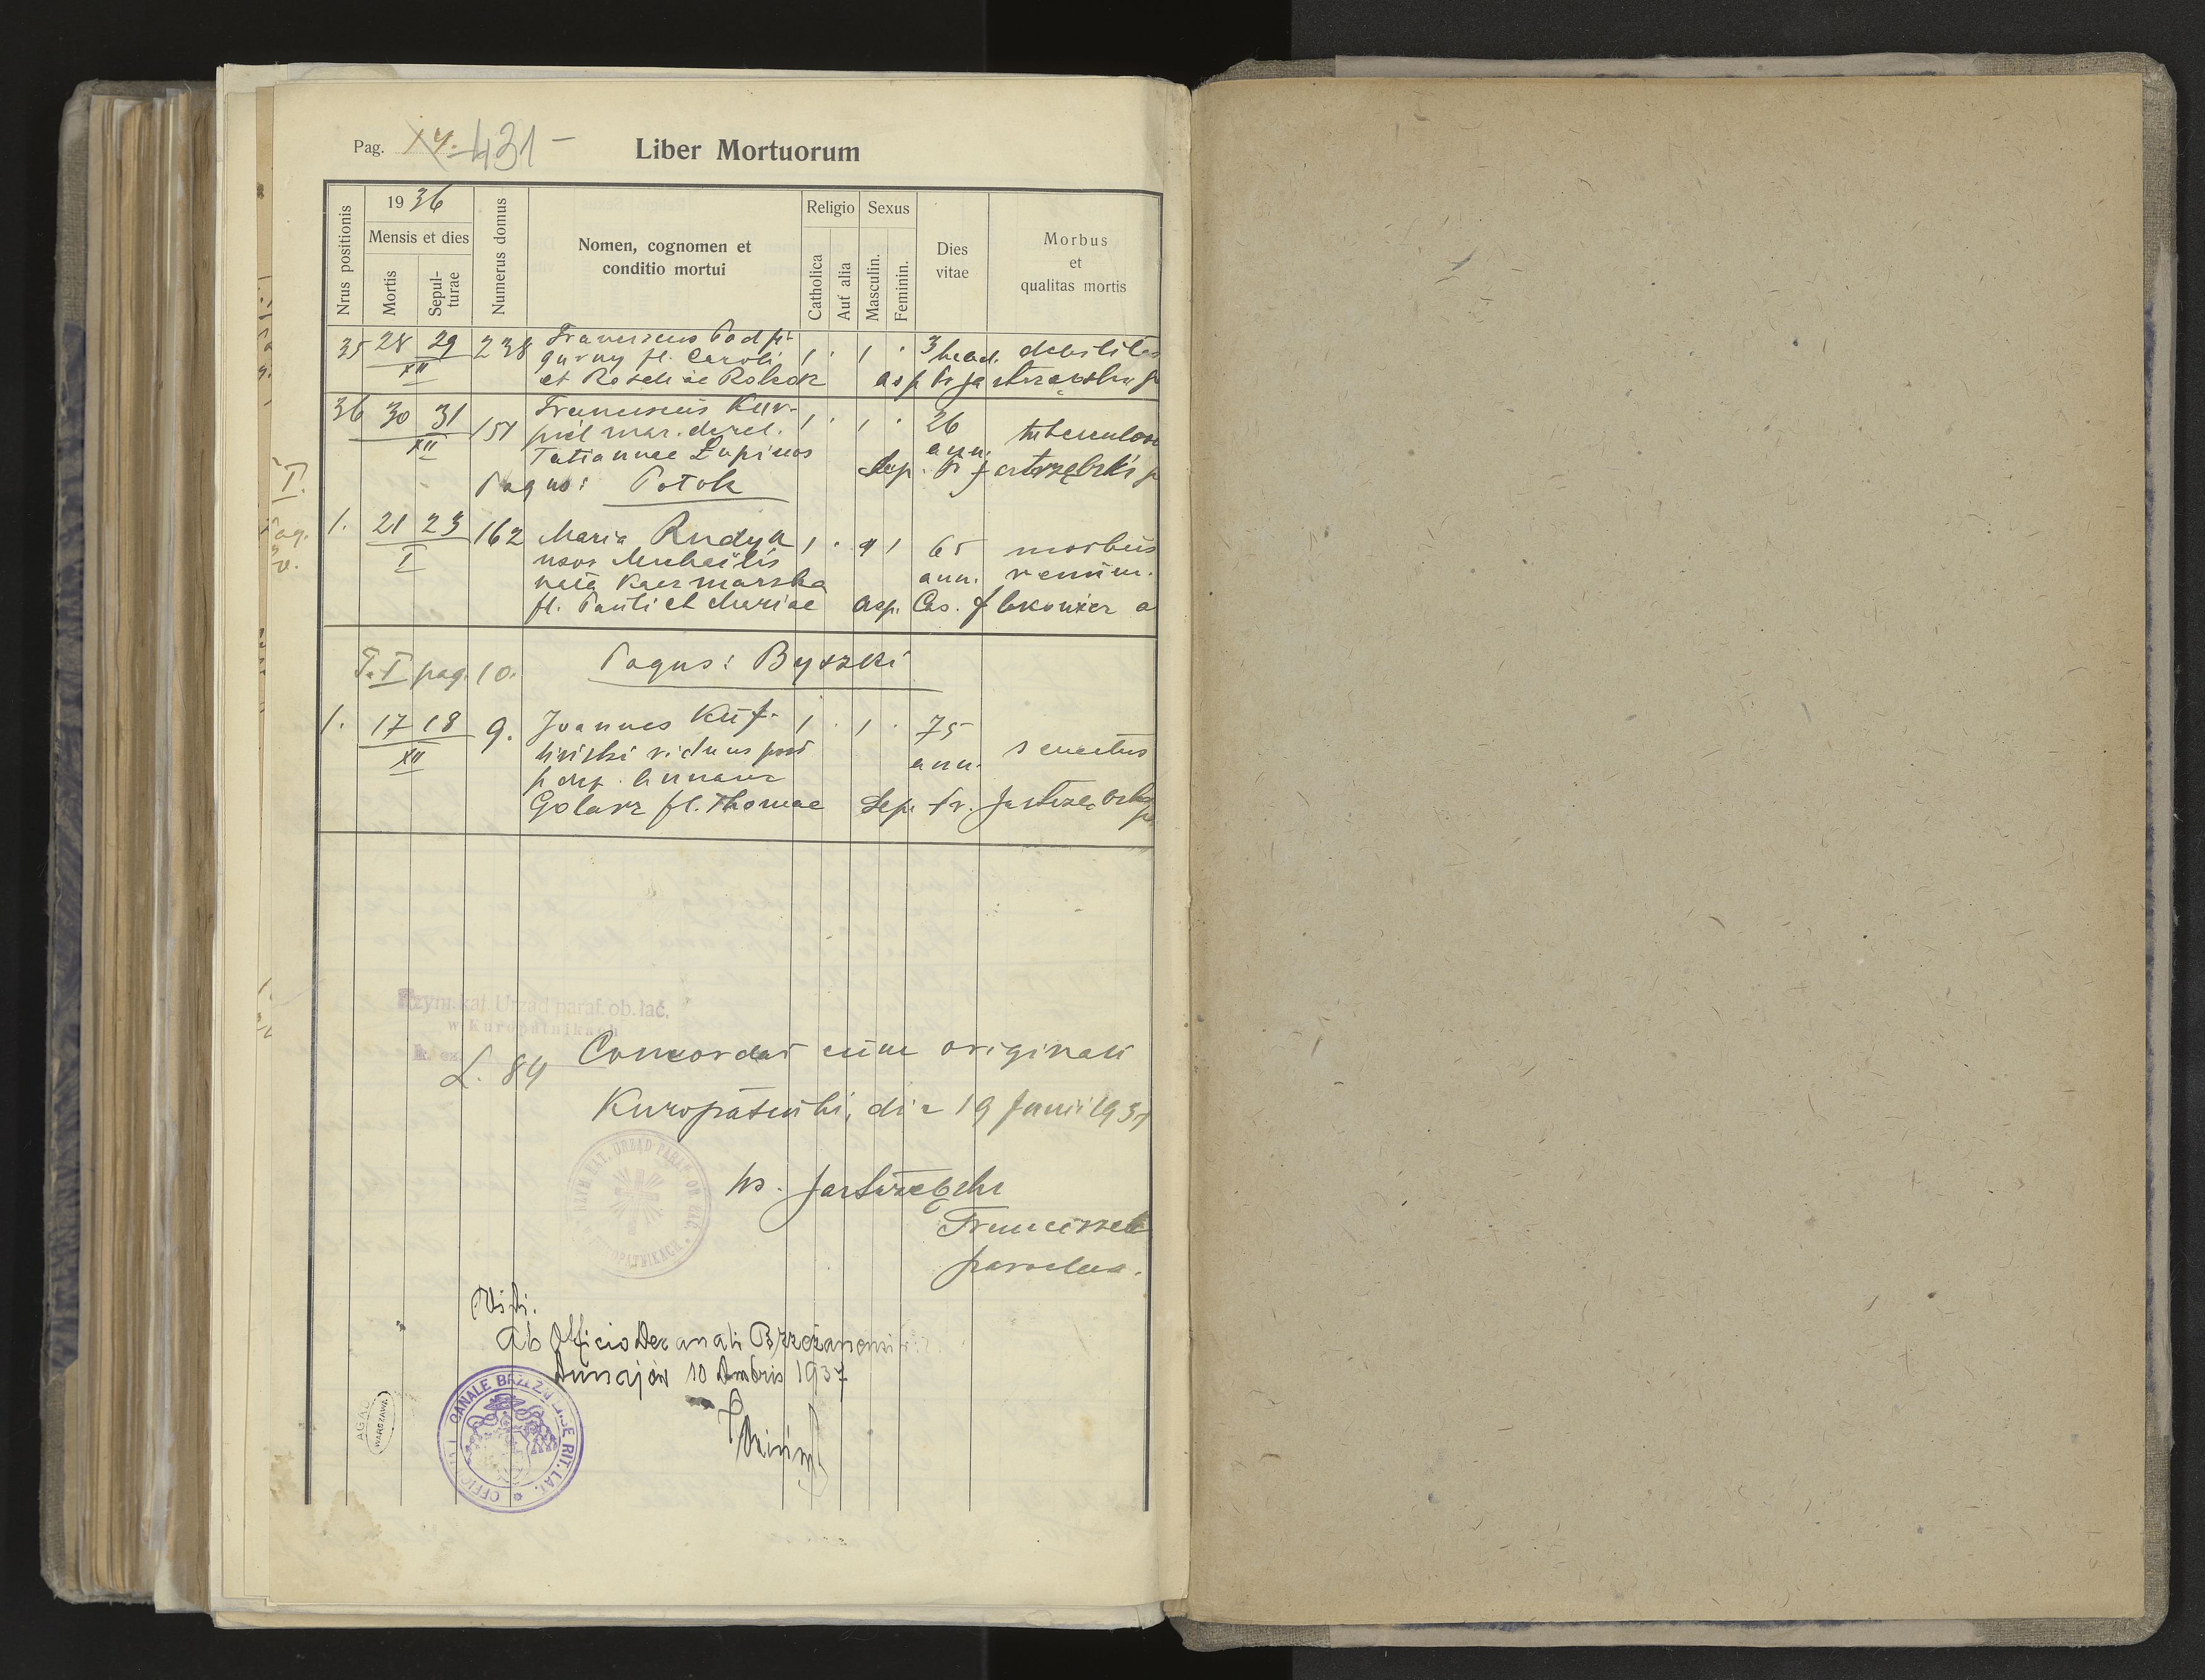 Pag. 431 -
Liber Mortuorum
Nrus positionis
1936
Mensis et dies
Mortis
Sepul-
turae
Numerus domus
Nomen, cognomen et
conditio mortui
Religio
Catholica
Auf alia
Sexus
Masculin.
Feminin.
Dies
vitae
Morbus
et
qualitas mortis
35 28 29 238 Franciscus Podpi-
XII
gurny fl. Caroli 1 . 1 . 3 debilitas
et Rosaliae
36 30 31 151 Franciscus Kur-
XII
piel mar. derel. 1 . 1 . 26 tuberculosi
Tatiannae Łupinos ann.
Sep. Fr Jastrzębski p
Pagus: Potok
1. 21 23 162 Maria Rudyk 1 . 1 65 morbus
I
uxor Michaëlis
nata Kaczmarska ann. renum.
fl. Pauli et Mariae asp. Cas.
T. I pag. 10.
Pagus: Byszki
1. 17 18 9. Joannes Kuf- 1 . 1 . 75
XII
liński viduus post ann. senectus
Golarz fl. Thomae Sep. Fr. Jastrzębski
T. I.
Rzym. kat Urząd paraf. ob. łać.
w Kuropatnikach
L. 84 Concordat cum originali
Kuropatniki, die 19 Junii 1937
Ks. Jastrzębski
Franciszek
RZYM. KAT. URZĄD PARAF. OB. ŁAĆ. KUROPATNIKACH
Vidi.
Ab Officio Decanali Brzeżanensi
Dunajów 10 1937
OFFICIUM DECANALE BRZEŻANENSE RIT. LAT.
AGAD
WARSZAWA